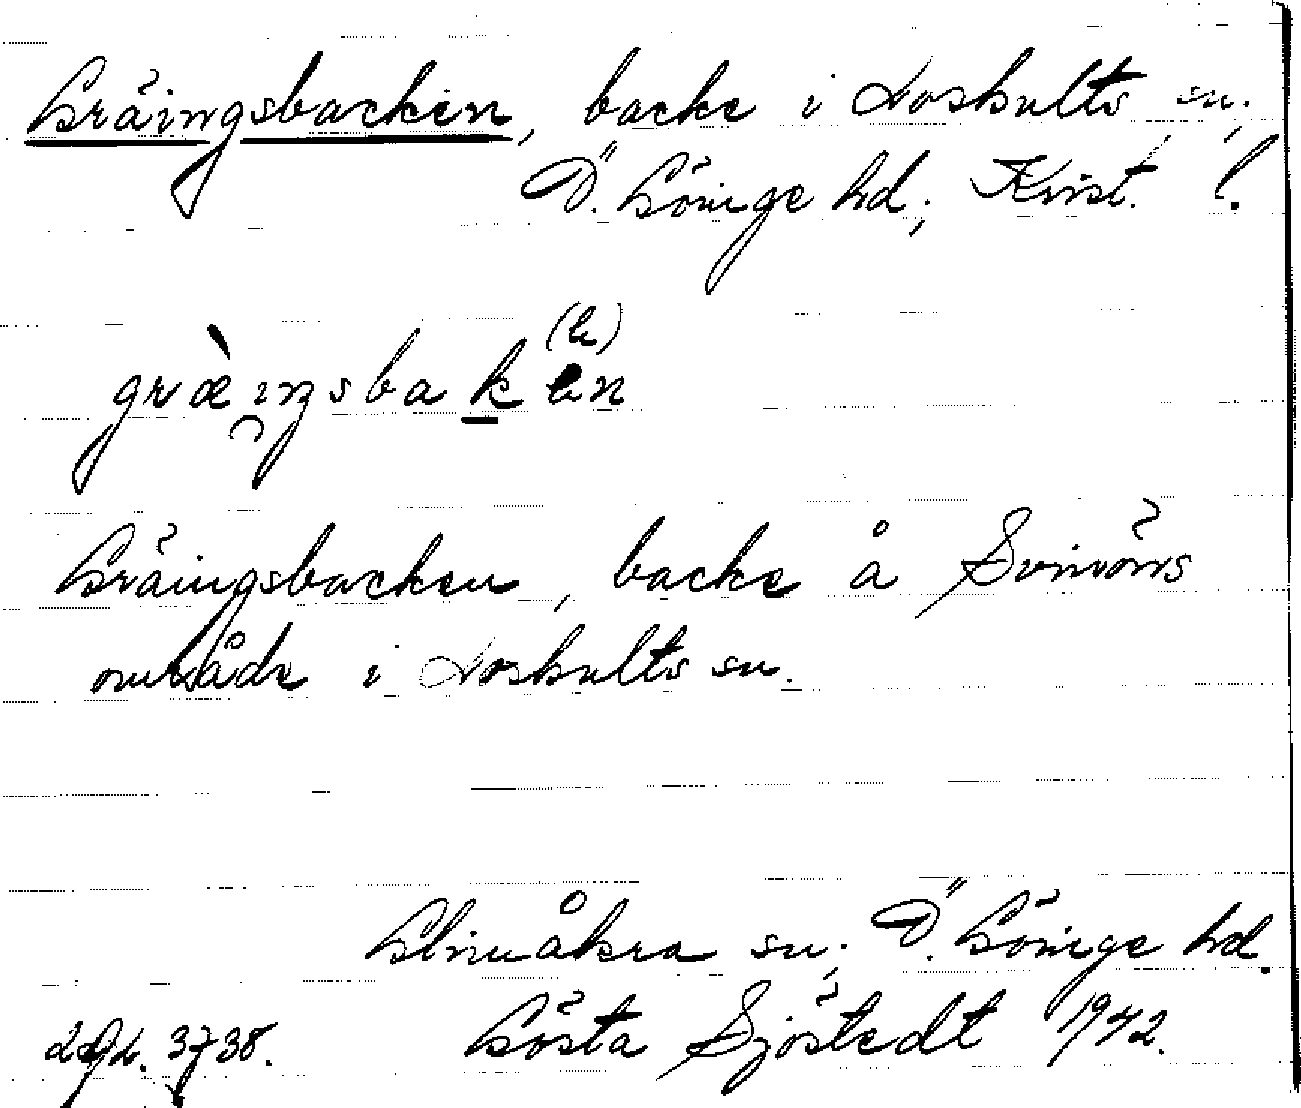 Gräingsbacken, backe i Loshults sn;
Ö. Göinge hd; Krist. l.
(e)
græ̀i̯ŋsbaken
Gräingsbacken, backe å Svinöns
område i Loshults sn.
Glimåkra sn; Ö. Göinge hd.
Gösta Sjöstedt 1942.
3738.